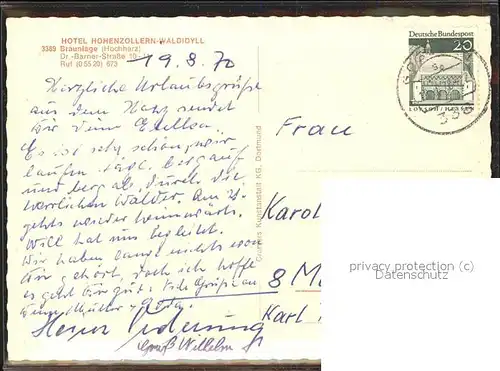 HOTEL HOHENZOLLERN-WALDIDYLL
3389 Braunlage (Hochharz)
Dr.-Barner-Straße 10-
Ruf (0 55 20) 673
19.8.70
Herzliche Urlaubsgrüße
aus dem Harz sendet
Dir Deine
Es ist sehr schön, wir
laufen bergauf
und bergab, durch die
herrlichen Wälder. Am
geht's wieder heimwärts.
Willi hat uns begleitet.
Wir haben lange nichts von
Dir gehört, doch ich hoffe
es geht Dir gut. Viele Grüße an
Deine Mutter
Gruß Wilhelm
Cramers Kunstanstalt KG, Dortmund
Deutsche Bundespost
20
LORSCH / HESSEN
Frau
Karol
8 M
Karl
privacy protection (c)
Datenschutz